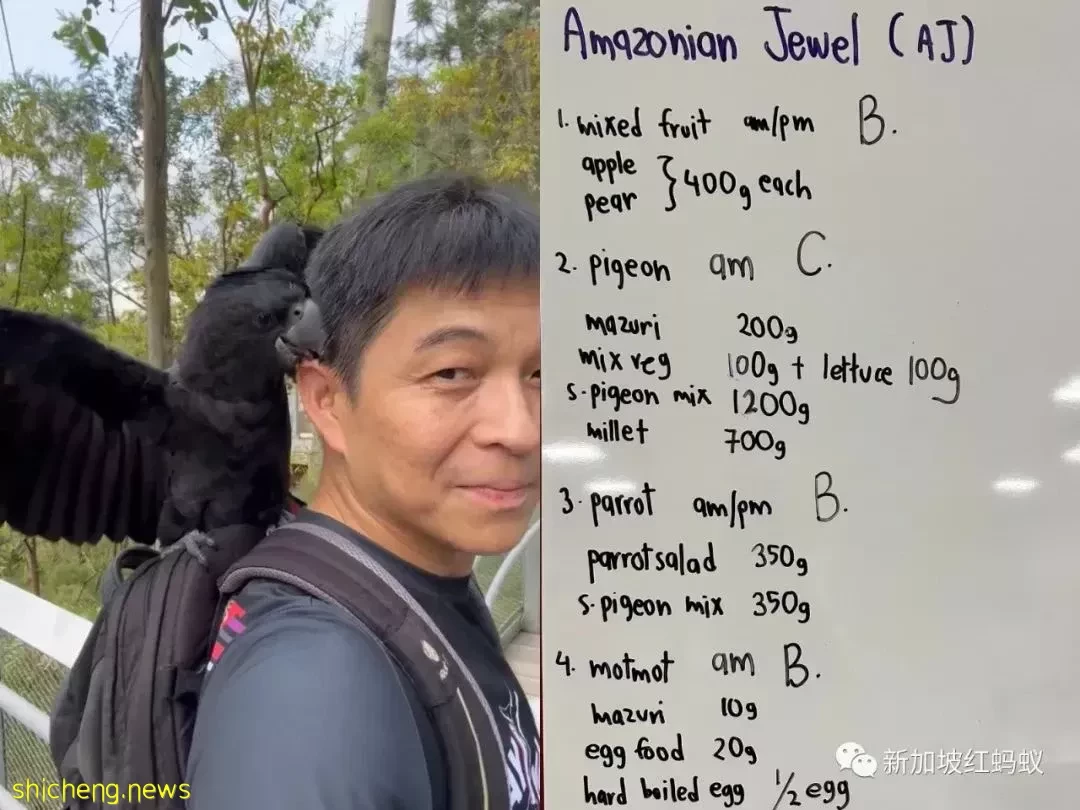 Amazonian Jewel (AJ)
1. mixed fruit am/pm B.
apple
pear } 400g each
2. pigeon am C.
mazuri 200g
mix veg 100g + lettuce 100g
s.pigeon mix 1200g
millet 700g
3. parrot am/pm B.
parrot salad 350g
s.pigeon mix 350g
4. motmot am B.
mazuri 10g
egg food 20g
hard boiled egg 1/2 egg
新加坡红蚂蚁
shicheng.news